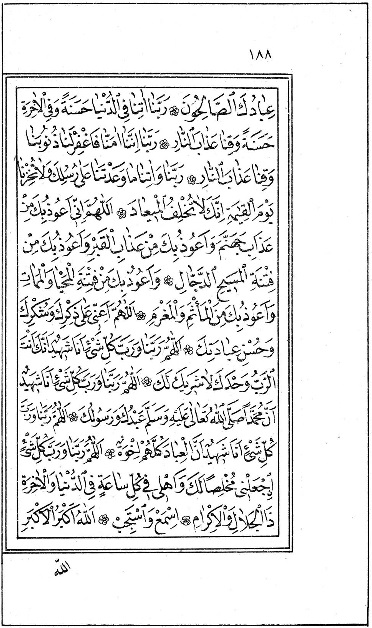 ١٨٨
عِبَادُكَ الصَّالِحُونَ ۞ رَبَّنَا اٰتِنَا فِى الدُّنْيَا حَسَنَةً وَفِى الْاٰخِرَةِ
حَسَنَةً وَقِنَا عَذَابَ النَّارِ ۞ رَبَّنَا اِنَّنَا اٰمَنَّا فَاغْفِرْ لَنَا ذُنُوبَنَا
وَقِنَا عَذَابَ النَّارِ ۞ رَبَّنَا وَاٰتِنَا مَا وَعَدْتَنَا عَلٰى رُسُلِكَ وَلَا تُخْزِنَا
يَوْمَ الْقِيٰمَةِ اِنَّكَ لَا تُخْلِفُ الْمِيعَادَ ۞ اَللّٰهُمَّ اِنِّى اَعُوذُ بِكَ مِنْ
عَذَابِ جَهَنَّمَ وَاَعُوذُ بِكَ مِنْ عَذَابِ الْقَبْرِ وَاَعُوذُ بِكَ مِنْ
فِتْنَةِ الْمَسِيحِ الدَّجَّالِ ۞ وَاَعُوذُ بِكَ مِنْ فِتْنَةِ الْمَحْيَا وَالْمَمَاتِ
وَاَعُوذُ بِكَ مِنَ الْمَأْثَمِ وَالْمَغْرَمِ ۞ اَللّٰهُمَّ اَعِنِّى عَلٰى ذِكْرِكَ وَشُكْرِكَ
وَحُسْنِ عِبَادَتِكَ ۞ اَللّٰهُمَّ رَبَّنَا وَرَبَّ كُلِّ شَىْءٍ اَنَا شَهِيدٌ اَنَّكَ اَنْتَ
الرَّبُّ وَحْدَكَ لَا شَرِيكَ لَكَ ۞ اَللّٰهُمَّ رَبَّنَا وَرَبَّ كُلِّ شَىْءٍ اَنَا شَهِيدٌ
اَنَّ مُحَمَّدًا صَلَّى اللّٰهُ تَعَالٰى عَلَيْهِ وَسَلَّمَ عَبْدُكَ وَرَسُولُكَ ۞ اَللّٰهُمَّ رَبَّنَا وَرَبَّ
كُلِّ شَىْءٍ اَنَا شَهِيدٌ اَنَّ الْعِبَادَ كُلَّهُمْ اِخْوَةٌ ۞ اَللّٰهُمَّ رَبَّنَا وَرَبَّ كُلِّ شَىْءٍ
اِجْعَلْنِى مُخْلِصًا لَكَ وَاَهْلِى فِى كُلِّ سَاعَةٍ فِى الدُّنْيَا وَالْاٰخِرَةِ
ذَا الْجَلَالِ وَالْاِكْرَامِ ۞ اِسْمَعْ وَاسْتَجِبْ ۞ اَللّٰهُ اَكْبَرُ الْاَكْبَرُ
اَللّٰهُ